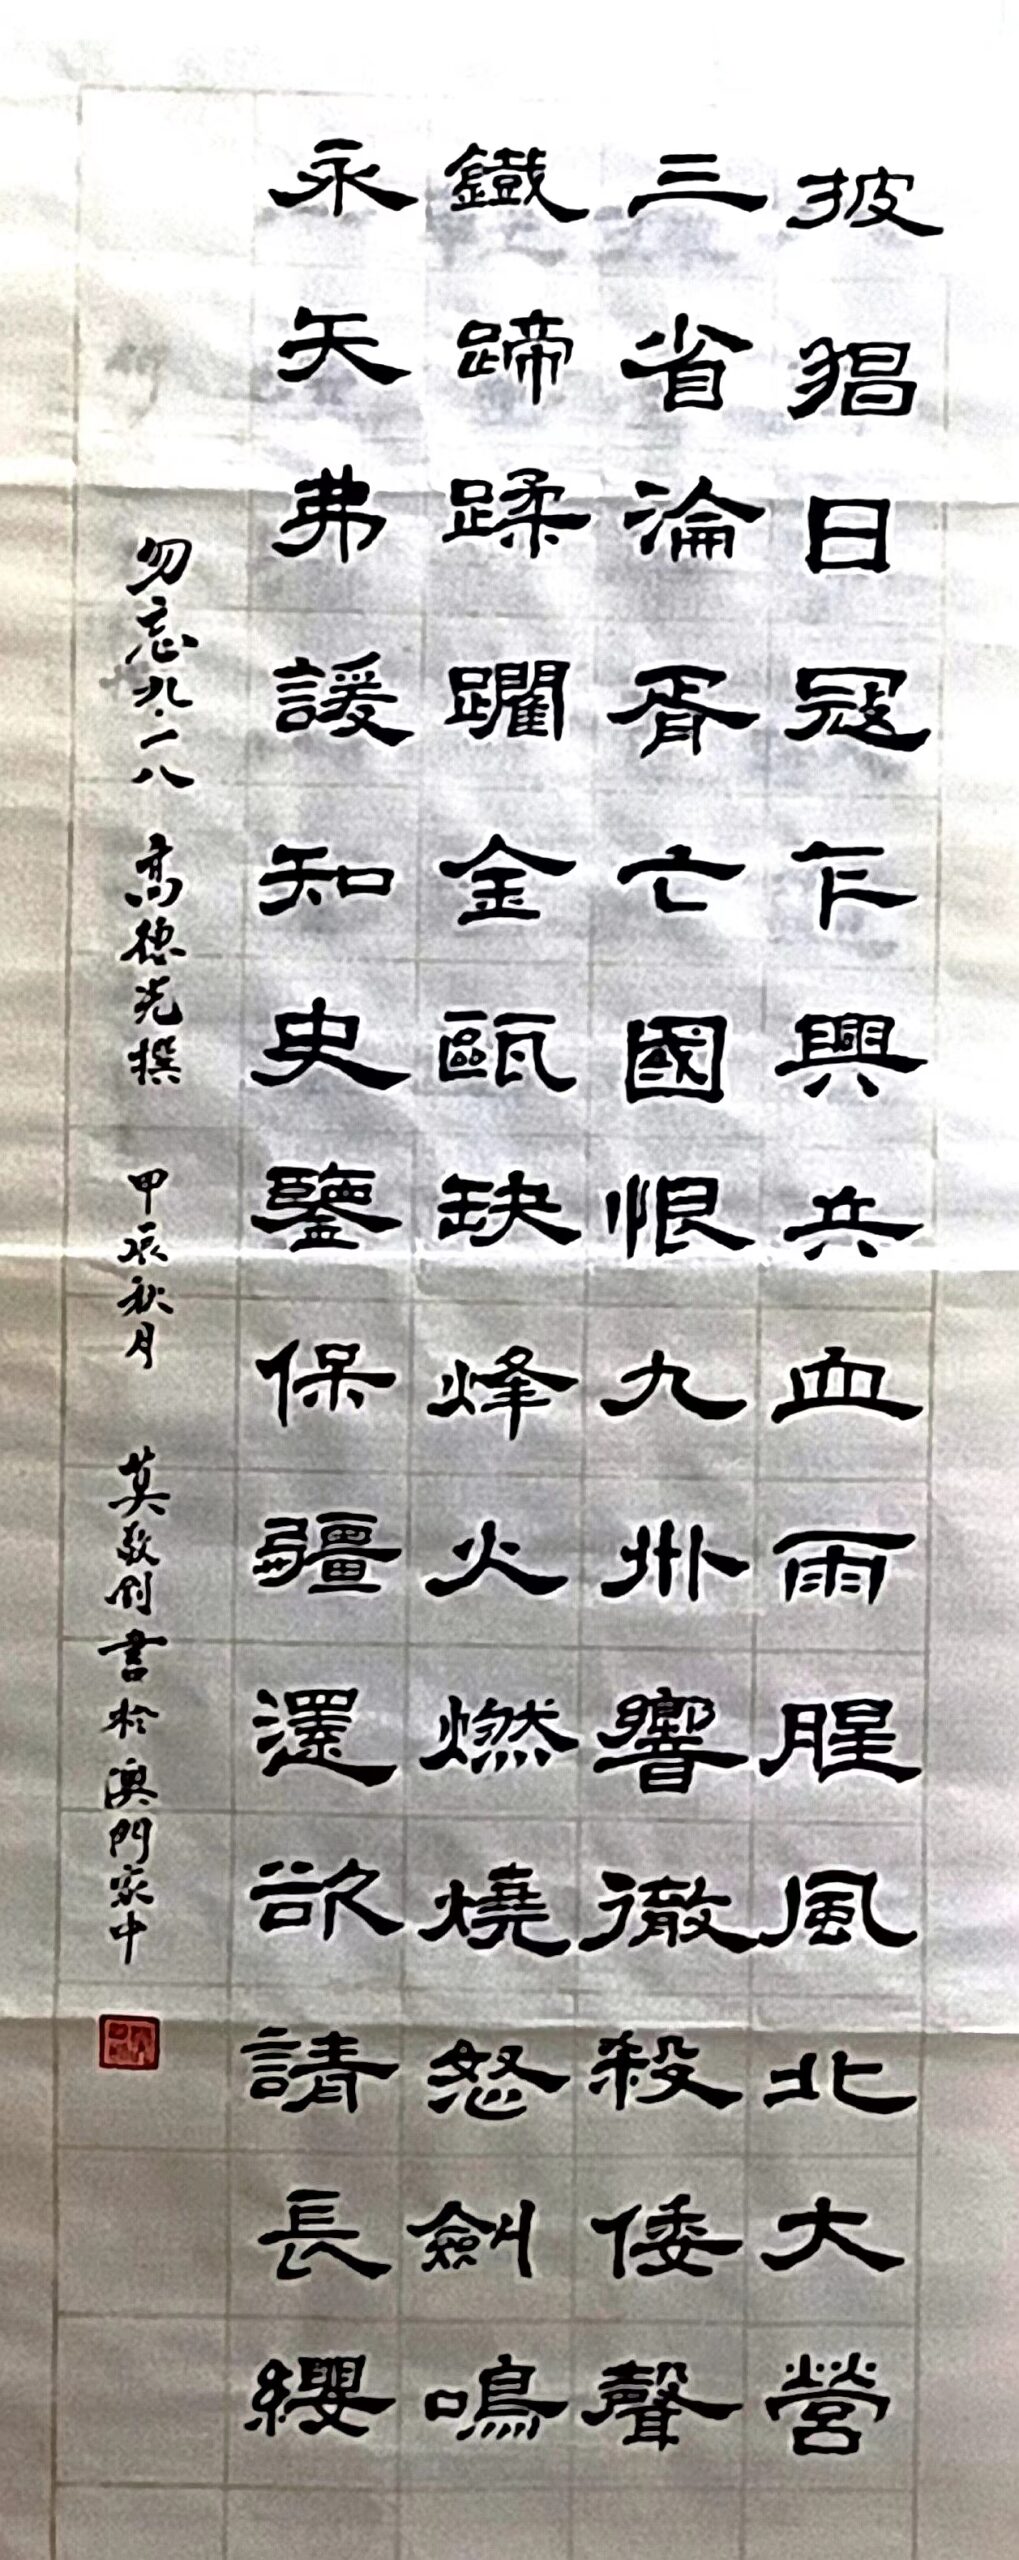 披猖日冦乍興兵血雨腥風北大營
三省淪胥亡國恨九州響徹殺倭聲
鐵蹄蹂躙金甌缺烽火燃燒怒劍鳴
永矢弗諼知史鑒保疆還欲請長纓
勿忘九·一八 高德光撰 甲辰秋月 莫敖創書於澳門家中